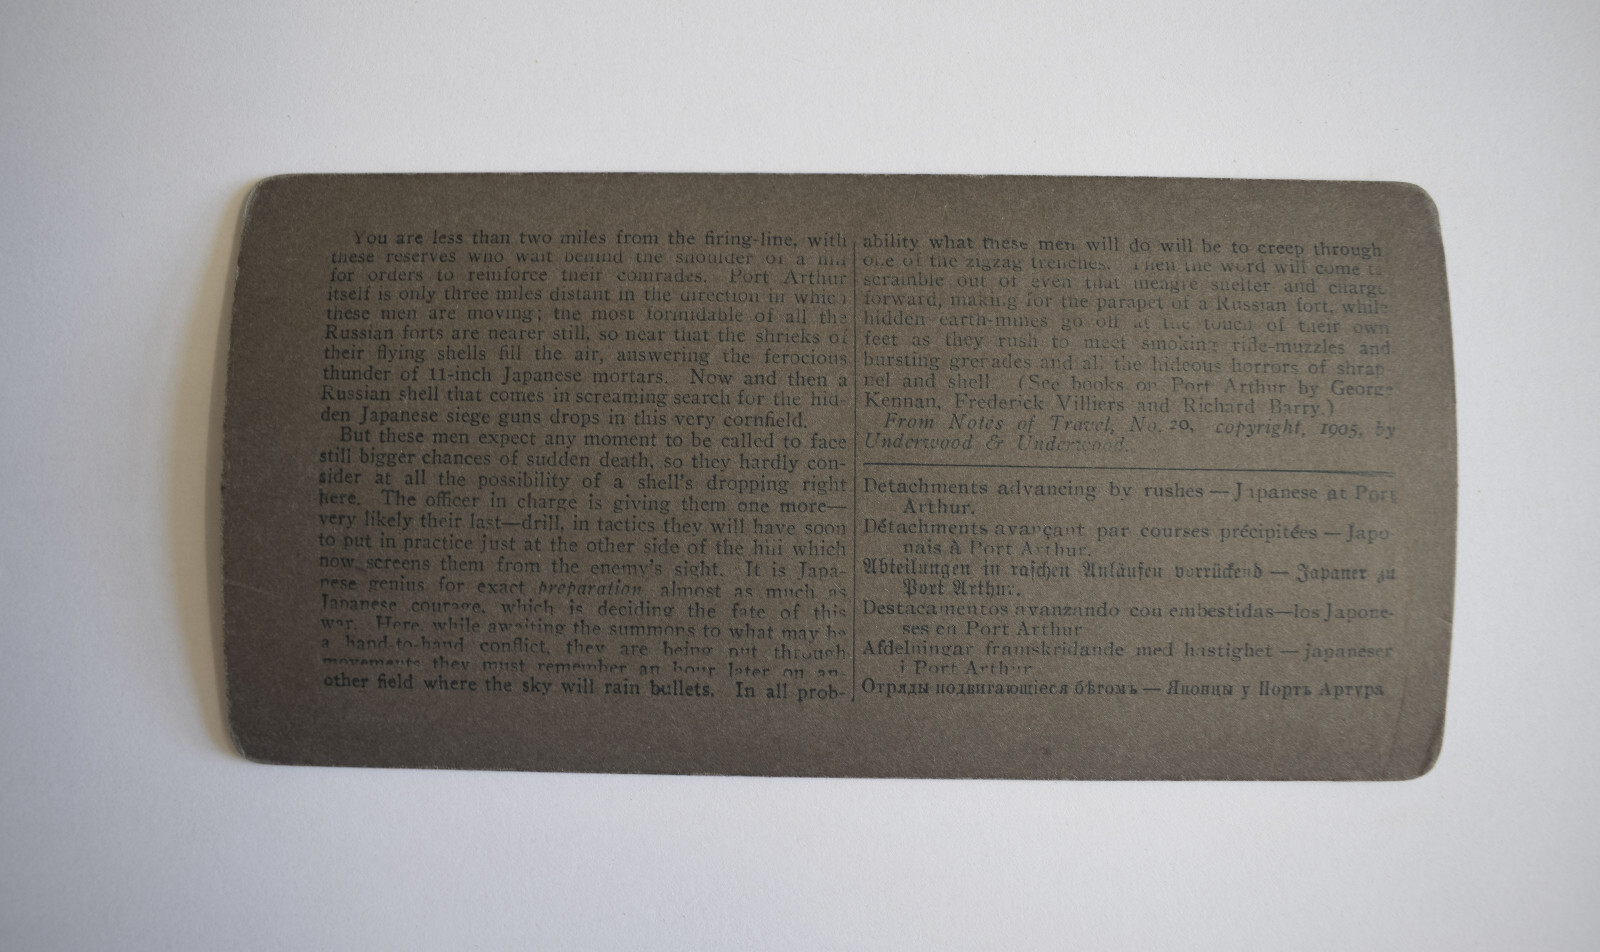 You are less than two miles from the firing-line, with
these reserves who wait behind the shoulder of a hill
for orders to reinforce their comrades. Port Arthur
itself is only three miles distant in the direction in which
these men are moving; the most formidable of all the
Russian forts are nearer still, so near that the shrieks of
their flying shells fill the air, answering the ferocious
thunder of 11-inch Japanese mortars. Now and then a
Russian shell that comes in screaming search for the hid-
den Japanese siege guns drops in this very cornfield.
But these men expect any moment to be called to face
still bigger chances of sudden death, so they hardly con-
sider at all the possibility of a shell's dropping right
here. The officer in charge is giving them one more—
very likely their last—drill, in tactics they will have soon
to put in practice just at the other side of the hill which
now screens them from the enemy's sight. It is Japa-
nese genius for exact preparation almost as much as
Japanese courage, which is deciding the fate of this
war. Here, while awaiting the summons to what may be
a hand-to-hand conflict, they are being put through
movements they must remember an hour later on an-
other field where the sky will rain bullets. In all prob-
ability what these men will do will be to creep through
one of the zigzag trenches. Then the word will come to
scramble out of even that meagre shelter and charge
forward, making for the parapet of a Russian fort, while
hidden earth-mines go off at the touch of their own
feet as they rush to meet smoking rifle-muzzles and
bursting grenades and all the hideous horrors of shrap
nel and shell. (See books on Port Arthur by George
Kennan, Frederick Villiers and Richard Barry.)
From Notes of Travel, No. 20, copyright, 1905, by
Underwood & Underwood.
Detachments advancing by rushes — Japanese at Port
Arthur.
Détachments avançant par courses précipitées — Japo
nais à Port Arthur.
Abteilungen in raschen Anläufen vorrückend — Japaner zu
Port Arthur.
Destacamentos avanzando con embestidas—los Japone-
ses en Port Arthur
Afdelningar framskridande med hastighet — japaneser
i Port Arthur
Отряды подвигающіеся бѣгомъ — Японцы у Портъ Артура